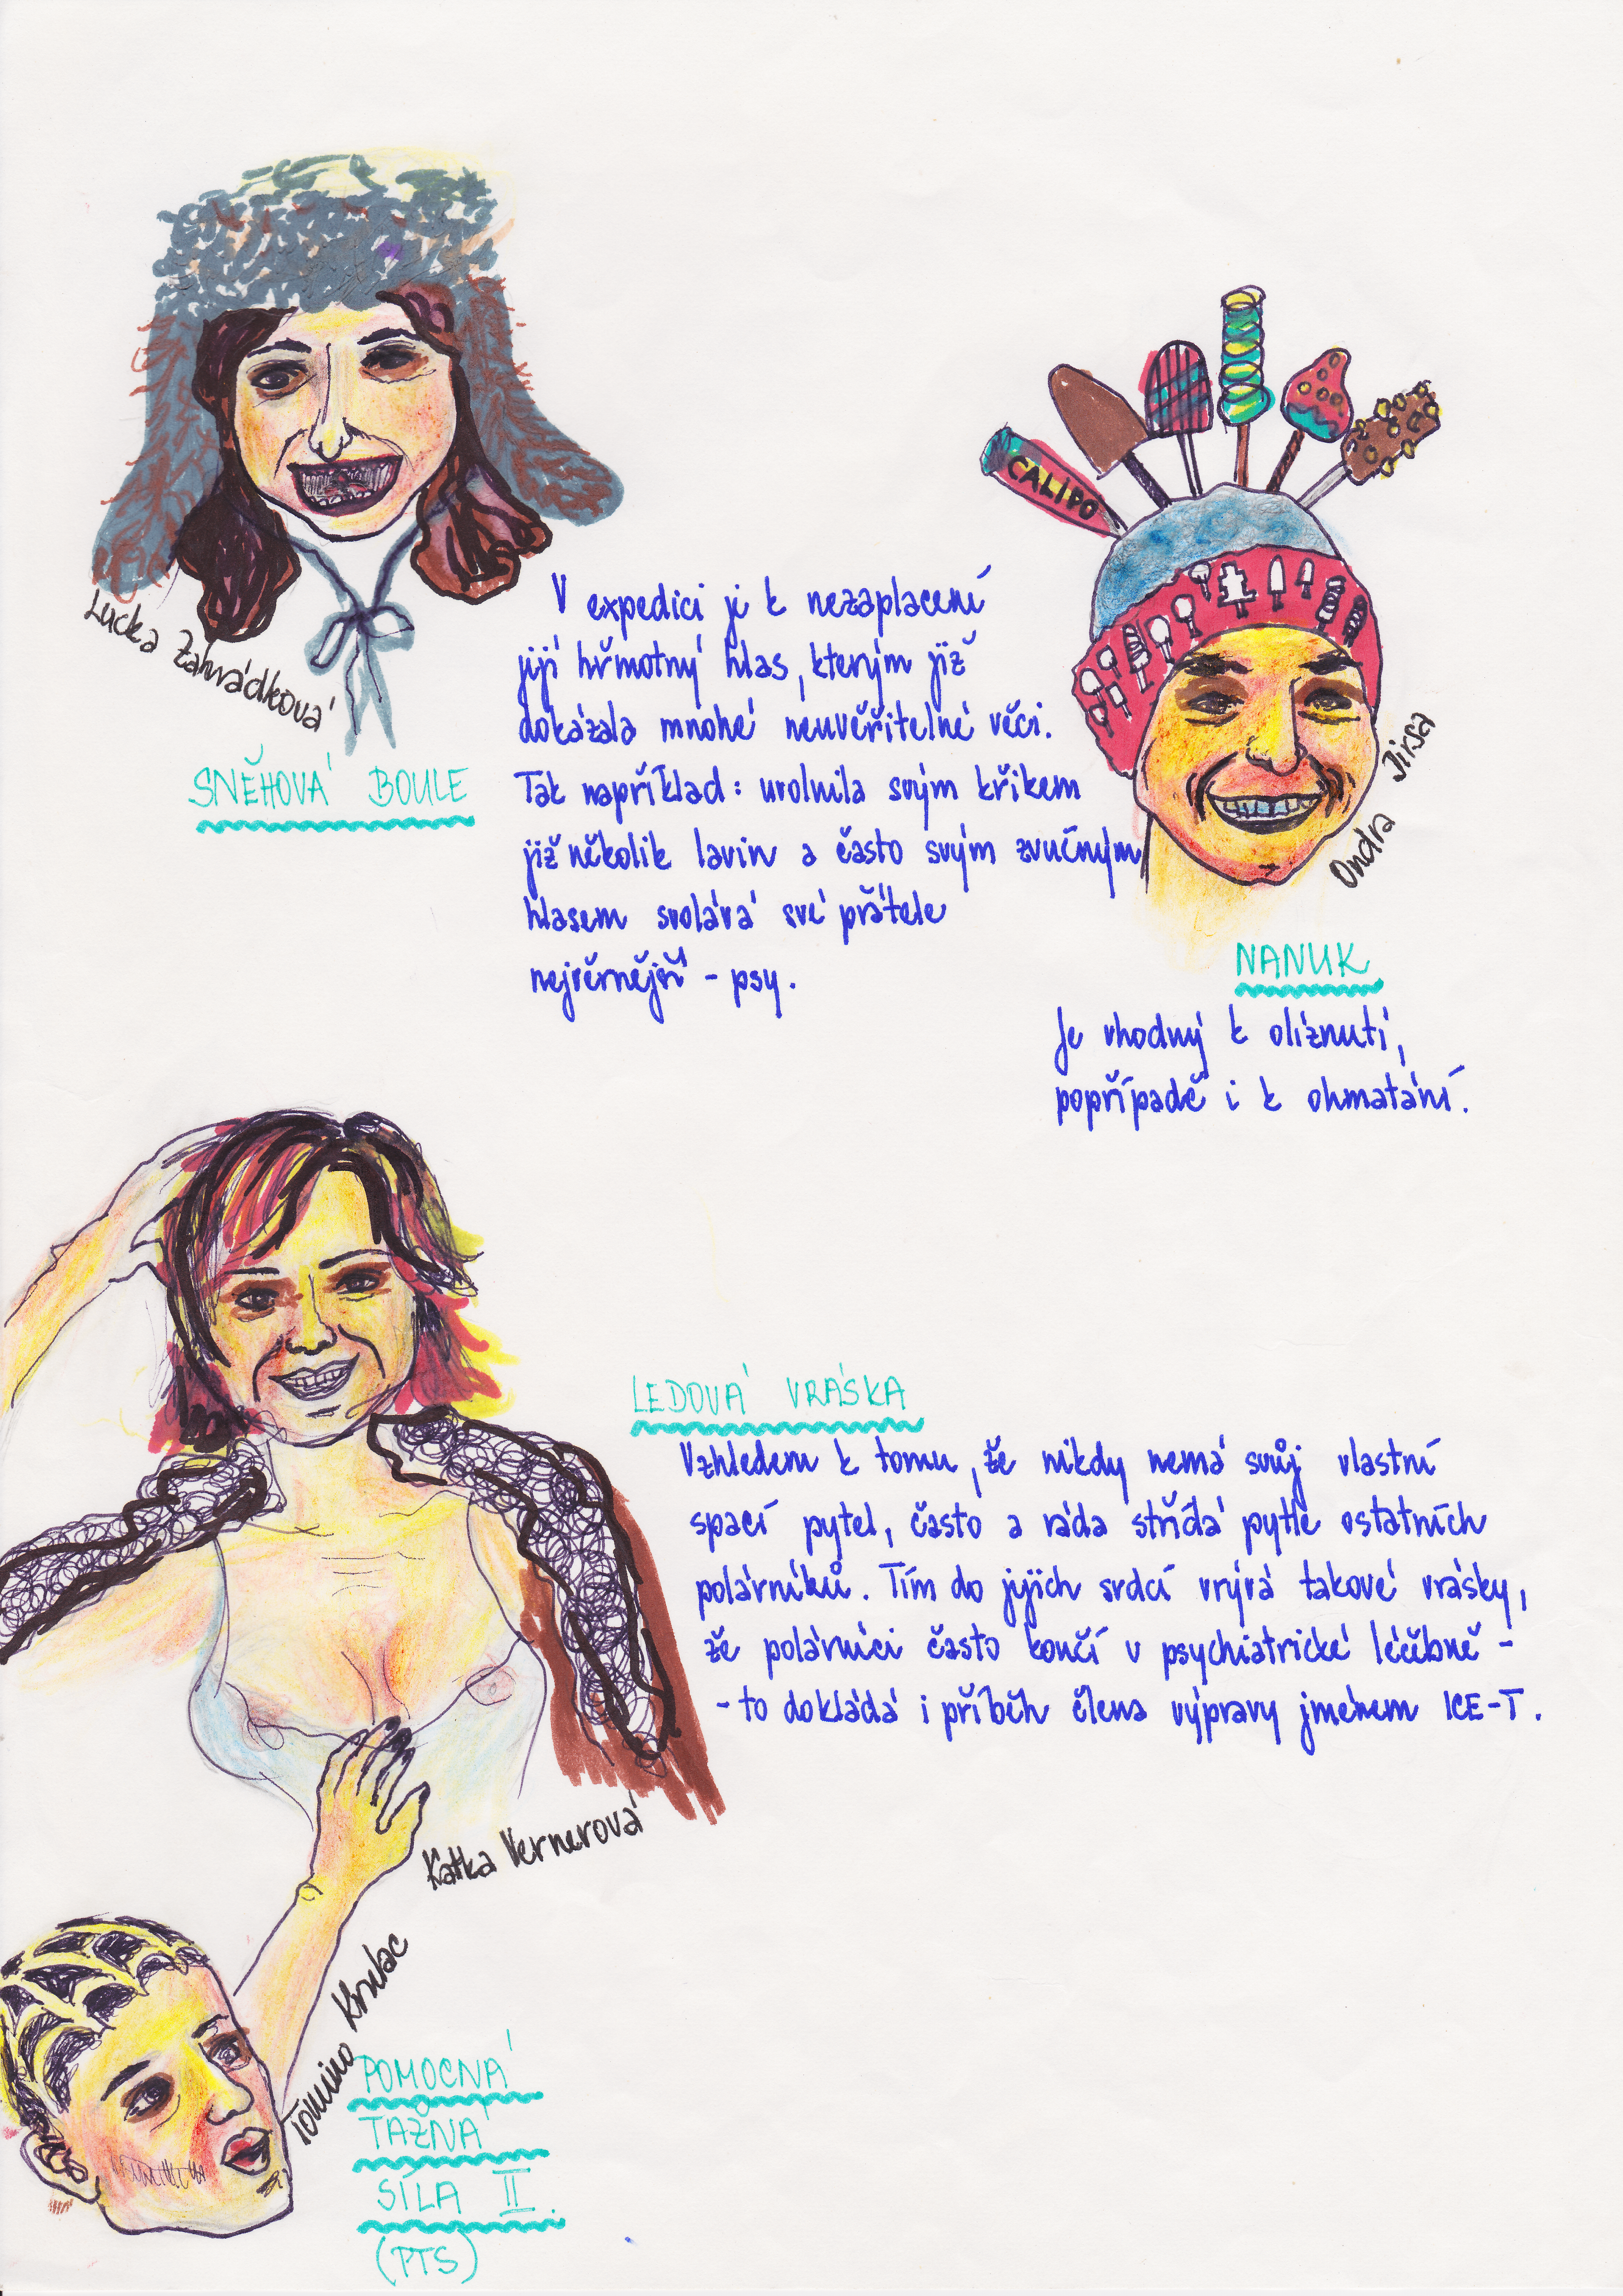 CALIPO
Lucka Zahrádková
SNĚHOVÁ BOULE
V expedici je k nezaplacení
její hřmotný hlas, kterým již
dokázala mnohé neuvěřitelné věci.
Tak například: uvolnila svým křikem
již několik lavin a často svým zvučným
hlasem svolává své přátele
nejvěrnější - psy.
Ondra Jirsa
NANUK
Je vhodný k olíznutí,
popřípadě i k ohmatání.
LEDOVÁ VRÁSKA
Vzhledem k tomu, že nikdy nemá svůj vlastní
spací pytel, často a ráda střídá pytle ostatních
polárníků. Tím do jejich srdcí vrývá takové vrásky,
že polárníci často končí v psychiatrické léčebně -
- to dokládá i příběh člena výpravy jménem ICE-T.
Katka Vernerová
Tomino
POMOCNÁ
TAŽNÁ
SÍLA II.
(PTS)